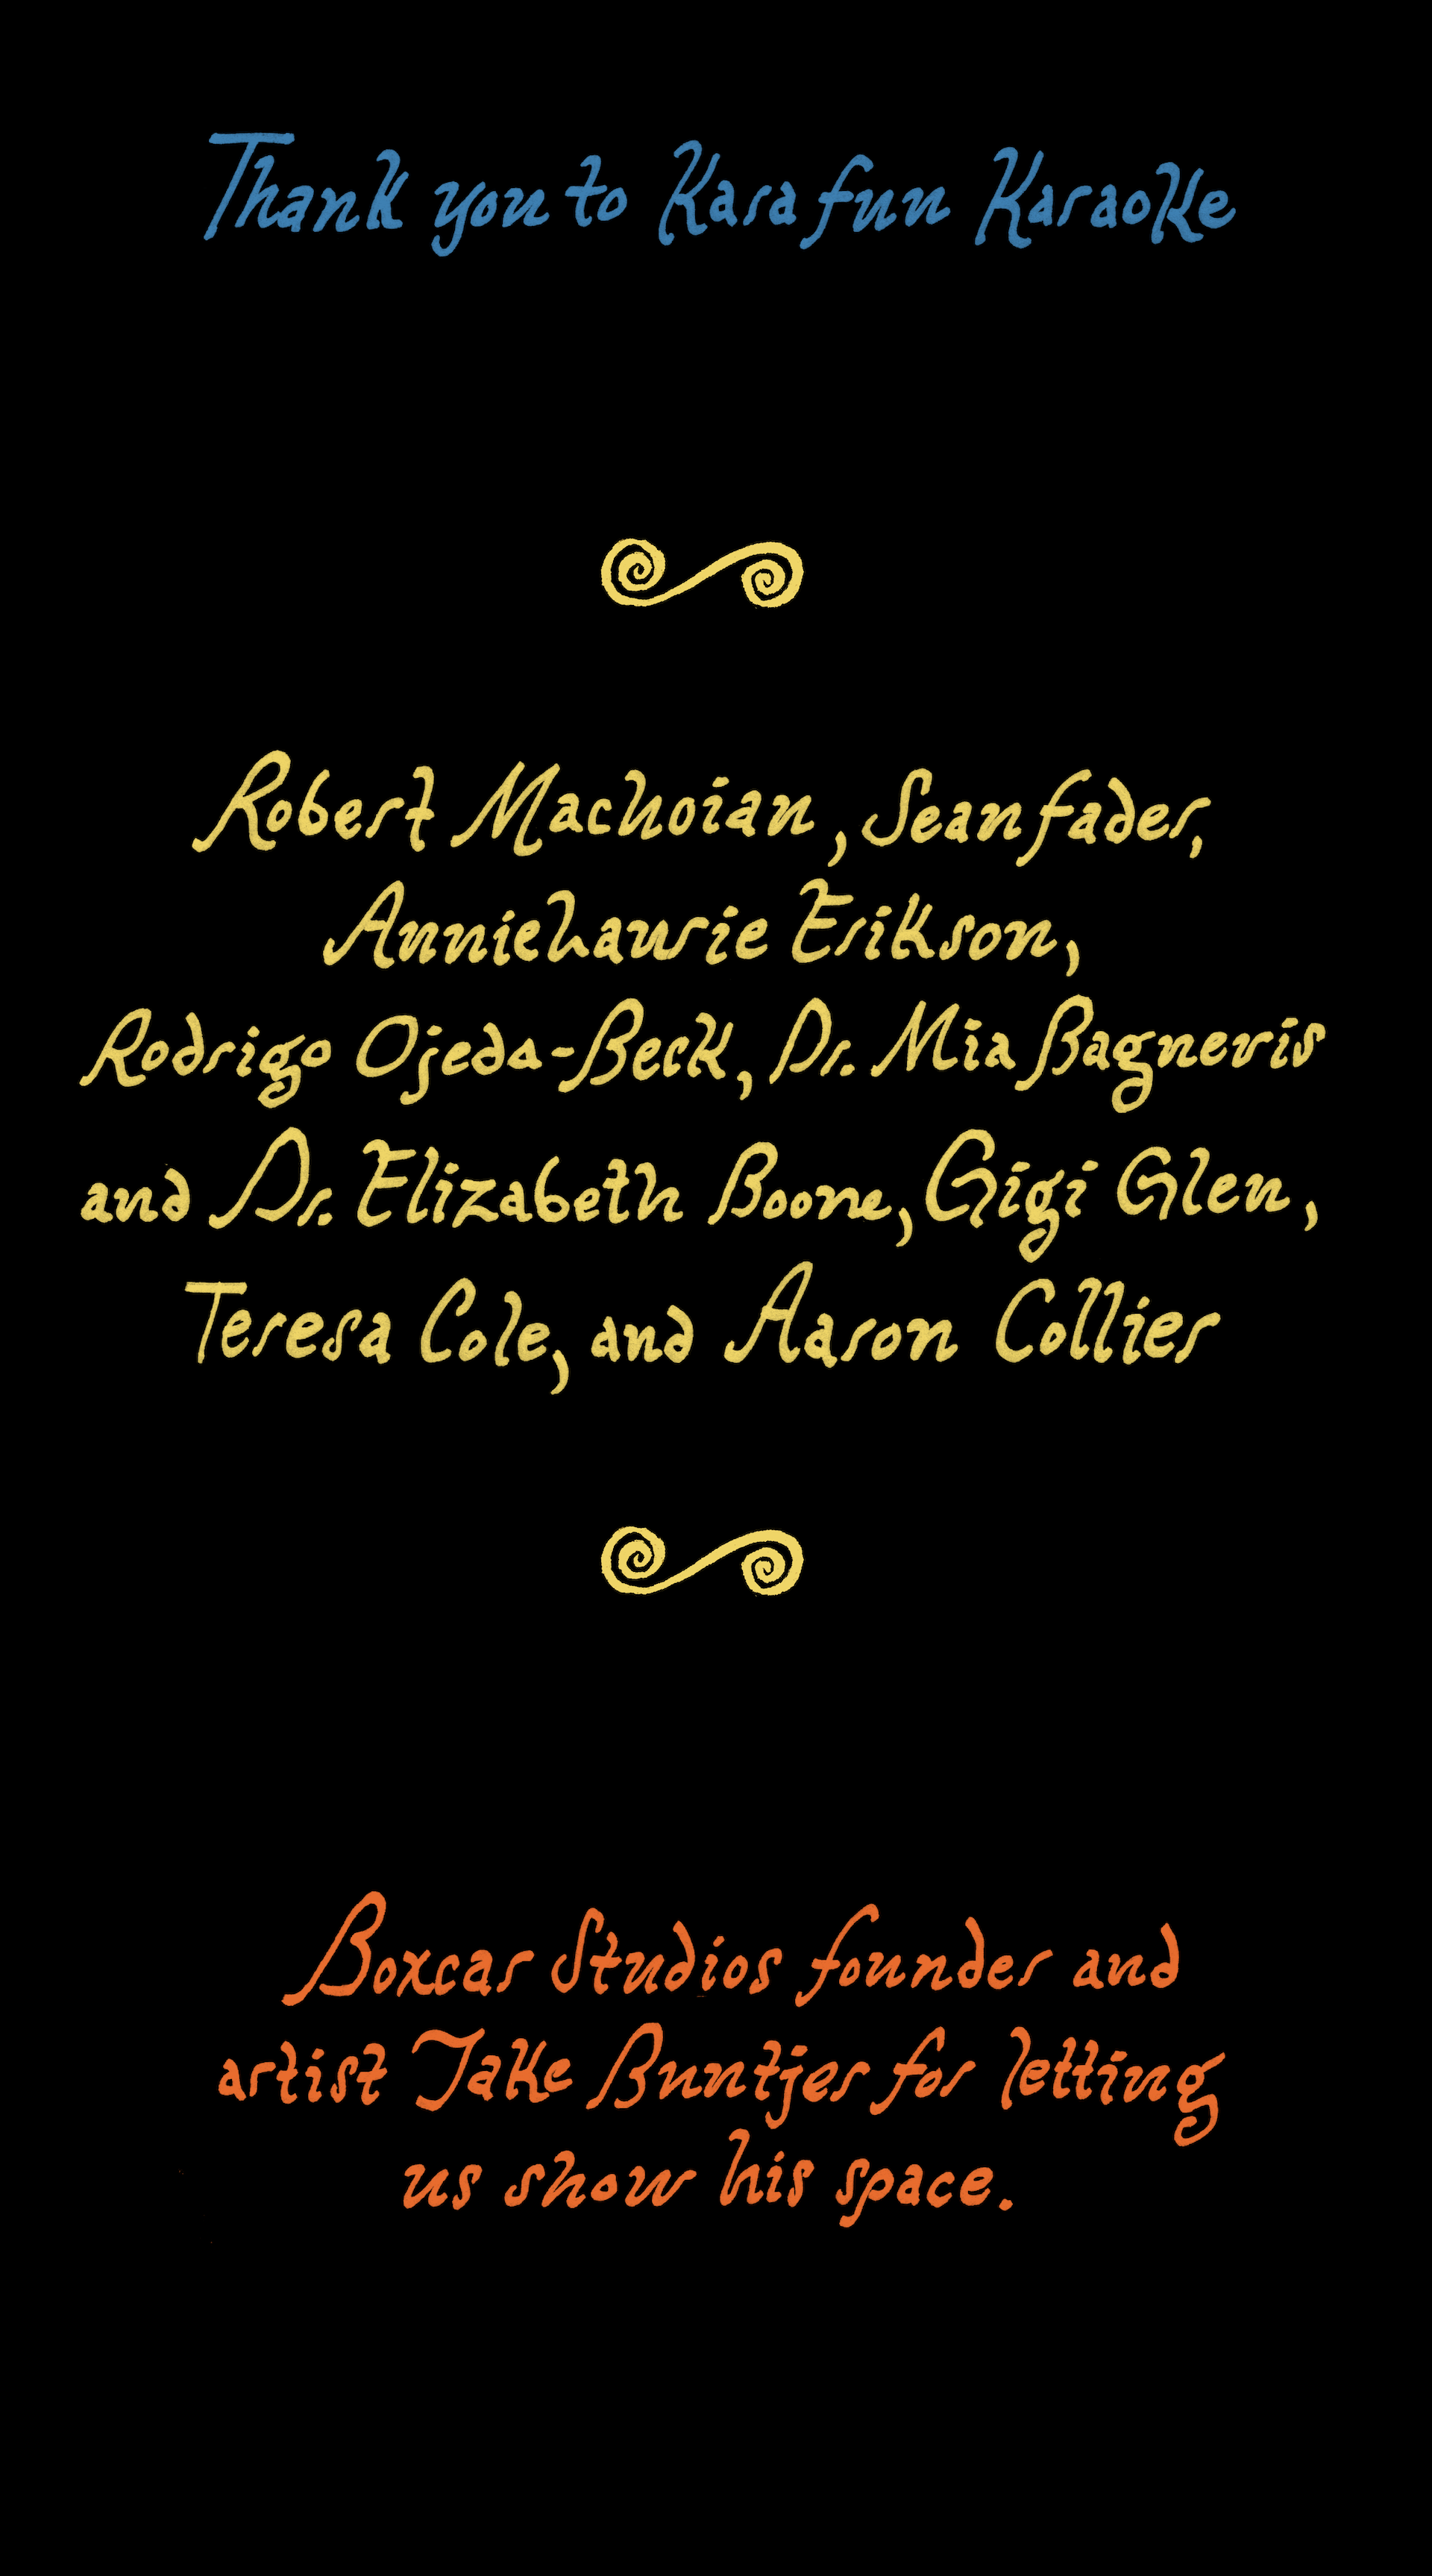 Thank you to Karafun Karaoke
Robert Machoian, Sean Fader,
Annie Laurie Erikson,
Rodrigo Ojeda-Beck, Dr. Mia Bagneris
and Dr. Elizabeth Boone, Gigi Glen,
Teresa Cole, and Aaron Collier
Boxcar Studios founder and
artist Jake Buntjer for letting
us show his space.